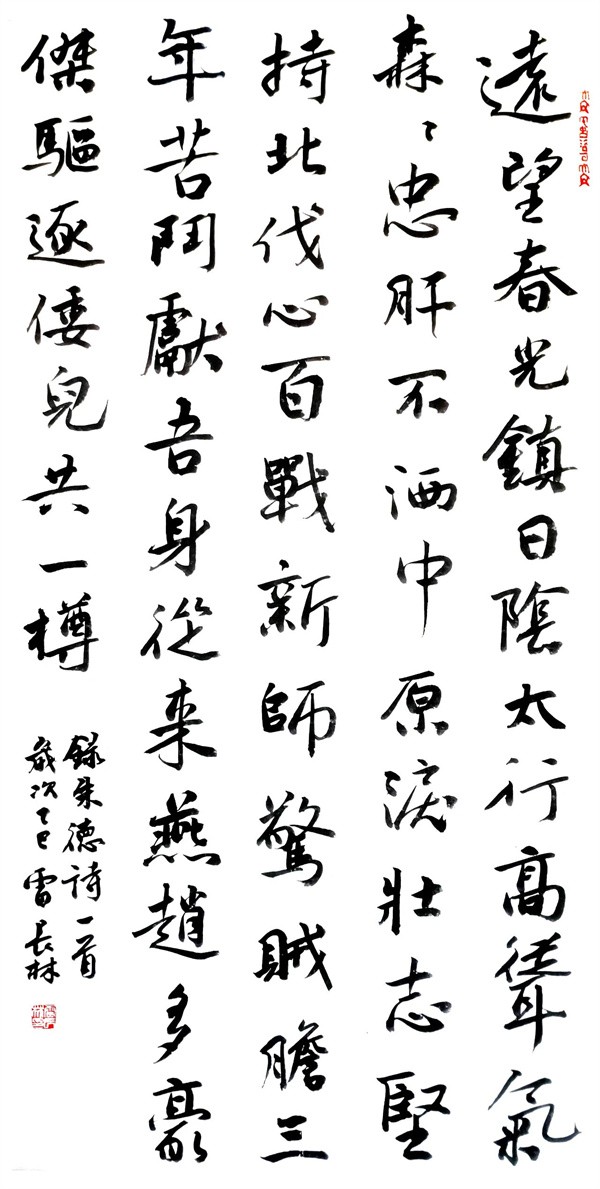 遠望春光鎮日陰太行高聳氣
森〻忠肝不洒中原淚壯志堅
持北伐心百戰新師驚賊膽三
年苦鬥獻吾身從来燕趙多豪
傑驅逐倭兒共一樽
錄朱德詩一首
歲次乙巳雷長林